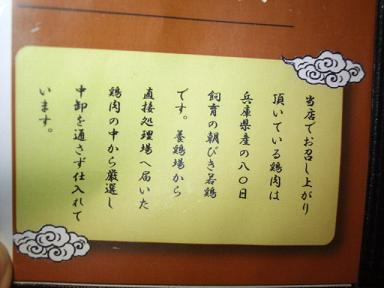 当店でお召し上がり
頂いている鶏肉は
兵庫県産の八〇日
飼育の朝びき若鶏
です。養鶏場から
直接処理場へ届いた
鶏肉の中から厳選し
中卸を通さず仕入れて
います。